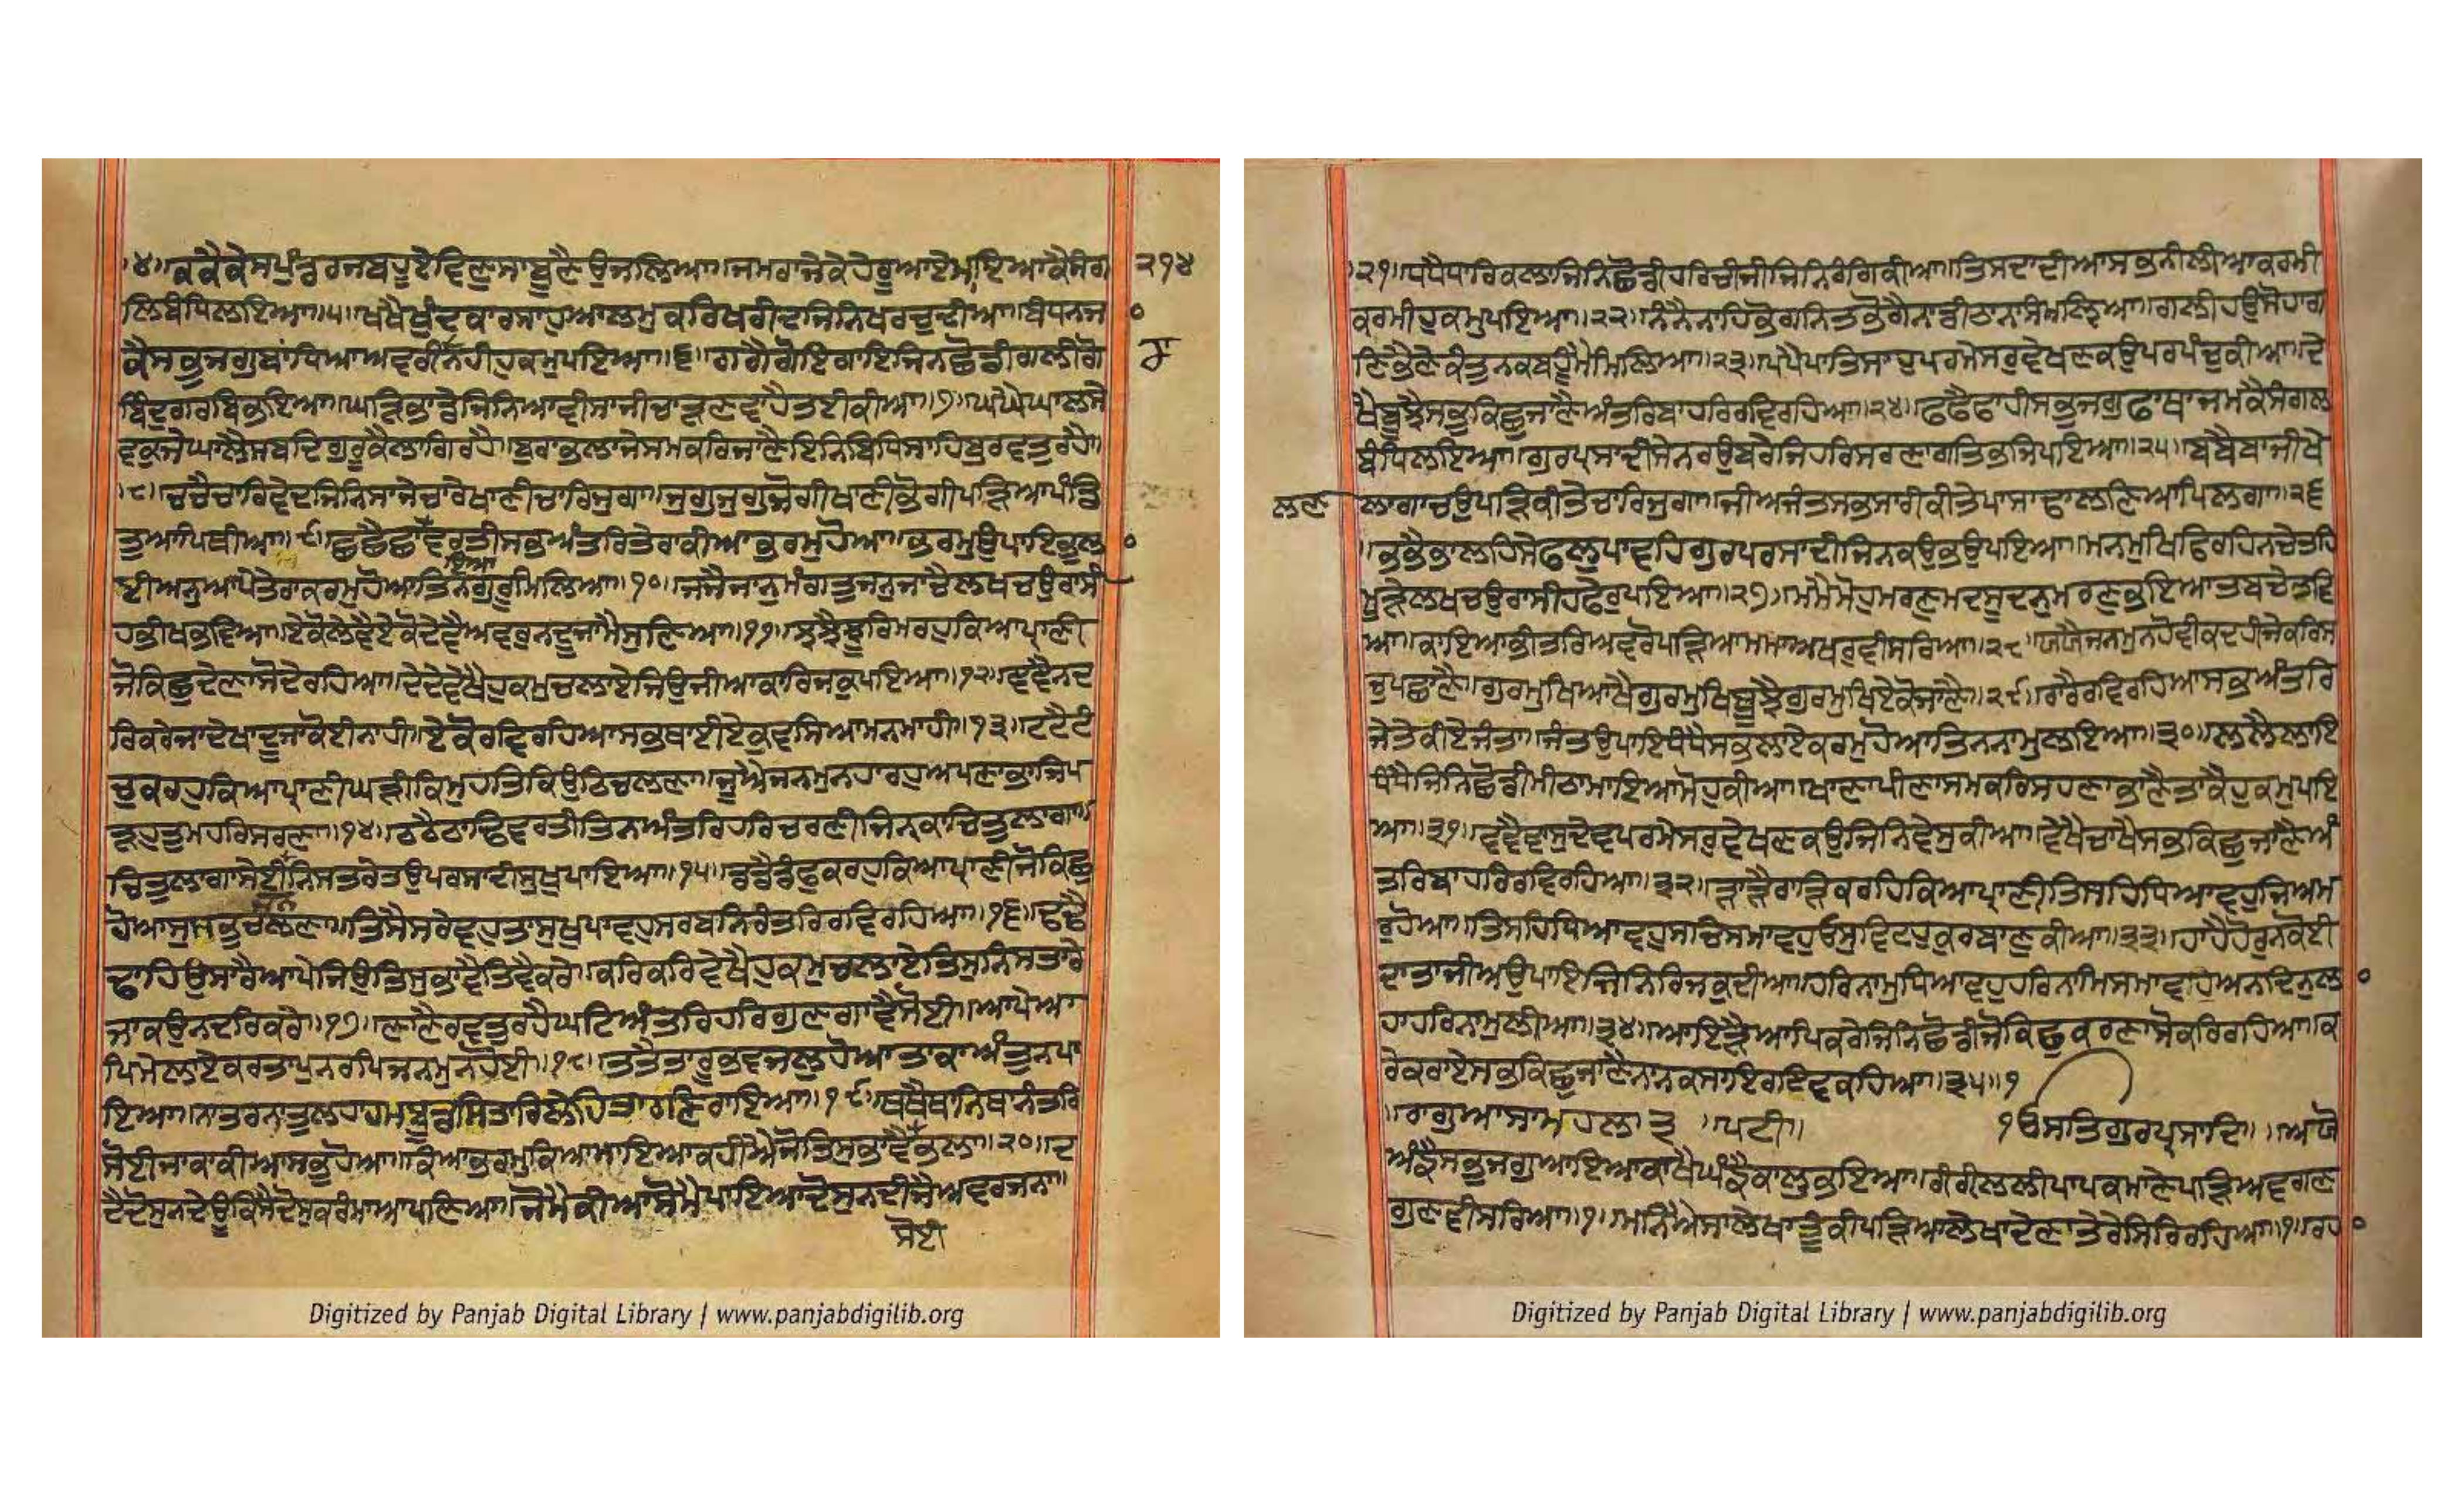 ।੪।।ਕਕੈਕੇਸਪੁੰਡਰਜਬਹੂਏਵਿਣੁਸਾਬੂਣੈਉਜਲਿਆ।।ਜਮਰਾਜੇਕੇਹੇਰੂਆਏਮਾਇਆਕੈਸੰਗ ੨੧੪
ਲਿਬੰਧਿਲਇਆ।।੫।।ਖਖੈਖੁੰਦਕਾਰਸਾਹਆਲਮੁਕਰਿਖਰੀਦਿਜਿਨਿਖਰਚੁਦੀਆ।।ਬੰਧਨਜ
ਕੈਸਭੁਜਗੁਬਾਂਧਿਆਅਵਰੀਨਹੀਹੁਕਮੁਪਇਆ।।੬।।ਗਗੈਗੋਇਗਾਇਜਿਨਛੋਡੀਗਲੀਗੋ
ਬਿੰਦੁਗਰਬਿਭਇਆ।।ਘੜਿਭਾਂਡੇਜਿਨਿਆਵੀਸਾਜੀਚਾੜਣਵਾਹੈਤਈਕੀਆ।।੭।।ਘਘੈਘਾਲਸੇ
ਵਕੁਜੇਘਾਲੈਸਬਦਿਗੁਰੂਕੈਲਾਗਿਰਹੈ।।ਬੁਰਾਭਲਾਜੇਸਮਕਰਿਜਾਣੈਇਨਿਬਿਧਿਸਾਹਿਬੁਰਵਤੁਰਹੈ।।
।੮।।ਚਚੈਚਾਰਿਵੇਦਜਿਨਿਸਾਜੇਚਾਰੇਖਾਣੀਚਾਰਿਜੁਗਾ।।ਜੁਗੁਜੁਗੁਜੋਗੀਖਾਣੀਭੋਗੀਪੜਿਆਪੰਡਿ
ਤੁਆਪਿਥੀਆ।।੯।।ਛਛੈਛਾਂਇਆਵਰਤੀਸਭਅੰਤਰਿਤੇਰਾਕੀਆਭਰਮੁਹੋਆ।।ਭਰਮੁਉਪਾਇਭੁਲਾ
ਈਅਨੁਆਪੇਤੇਰਾਕਰਮੁਹੋਆਤਿਨਗੁਰੂਮਿਲਿਆ।।੧੦।।ਜਜੈਜਾਨੁਮੰਗਤਜਨੁਜਾਚੈਲਖਚਉਰਾਸੀ
ਹਭੀਖਭਵਿਆ।।ਏਕੋਲੇਵੈਏਕੋਦੇਵੈਅਵਰੁਨਦੂਜਾਮੈਸੁਣਿਆ।।੧੧।।ਝਝੈਝੂਰਿਮਰਹੁਕਿਆਪ੍ਰਾਣੀ
ਜੋਕਿਛੁਦੇਣਾਸੋਦੇਰਹਿਆ।।ਦੇਦੇਵੇਖੈਹੁਕਮੁਚਲਾਏਜਿਉਜੀਆਕਾਰਿਜਕੁਪਇਆ।।੧੨।।ਞਞੈਨਦ
ਰਿਕਰੇਜਾਦੇਖਾਦੂਜਾਕੋਈਨਾਹੀ।।ਏਕੋਰਵਿਰਹਿਆਸਭਥਾਈਏਕੁਵਸਿਆਮਨਮਾਹੀ।।੧੩।।ਟਟੈਟੰ
ਚੁਕਰਹੁਕਿਆਪ੍ਰਾਣੀਘੜੀਕਿਮੁਹਤਿਕਿਉਠਿਚਲਣਾ।।ਜੂਐਜਨਮੁਨਹਾਰਹੁਅਪਣਾਭਾਜਿਪ
ੜਹੁਤੁਮਹਰਿਸਰਣਾ।।੧੪।।ਠਠੈਠਾਢਿਵਰਤੀਤਿਨਅੰਤਰਿਹਰਿਚਰਣੀਜਿਨਕਾਚਿਤੁਲਾਗਾ।।
ਚਿਤੁਲਾਗਾਸੇਈਨਿਸਤਰੇਤਉਪਰਸਾਦੀਸੁਖੁਪਾਇਆ।।੧੫।।ਡਡੈਡੰਫੁਕਰਹੁਕਿਆਪ੍ਰਾਣੀਜੋਕਿਛੁ
ਹੋਆਸੁਸਭੁਚਲਣਾ।।ਤਿਸੈਸਰੇਵਹੁਤਾਸੁਖੁਪਾਵਹੁਸਰਬਨਿਰੰਤਰਿਰਵਿਰਹਿਆ।।੧੬।।ਢਢੈ
ਢਾਹਿਉਸਾਰੈਆਪੇਜਿਉਤਿਸੁਭਾਵੈਤਿਵੈਕਰੇ।।ਕਰਿਕਰਿਵੇਖੈਹੁਕਮੁਚਲਾਏਤਿਸੁਨਿਸਤਾਰੇ
ਜਾਕਉਨਦਰਿਕਰੇ।।੧੭।।ਣਾਣੈਰਵਤੁਰਹੈਘਟਿਅੰਤਰਿਹਰਿਗੁਣਗਾਵੈਸੋਈ।।ਆਪੇਆ
ਪਿਮੇਲਾਏਕਰਤਾਪੁਨਰਪਿਜਨਮੁਨਹੋਈ।।੧੮।।ਤਤੈਤਾਰੂਭਵਜਲੁਹੋਆਤਾਕਾਅੰਤੁਨਪਾ
ਇਆ।।ਨਾਤਰਨਾਤੁਲਹਾਹਮਬੂਡਸਿਤਾਰਿਲੇਹਿਤਾਰਣਿਰਾਇਆ।।੧੯।।ਥਥੈਥਾਨਿਥਾਨੰਤਰਿ
ਸੋਈਜਾਕਾਕੀਆਸਭੁਹੋਆ।।ਕਿਆਭਰਮੁਕਿਆਮਾਇਆਕਹੀਐਜੋਤਿਸੁਭਾਵੈਭਲਾ।।੨੦।।ਦ
ਦੈਦੋਸੁਨਦੇਊਕਿਸੈਦੋਸੁਕਰੰਮਾਆਪਣਿਆ।।ਜੋਮੈਕੀਆਸੋਮੈਪਾਇਆਦੋਸੁਨਦੀਜੈਅਵਰਜਨਾ।।
ਸੋਈ
।੨੧।।ਧਧੈਧਾਰਿਕਲਾਜਿਨਿਛੋਡੀਹਰਿਚੀਜੀਜਿਨਿਰੰਗਕੀਆ।।ਤਿਸਦਾਦੀਆਸਭਨੀਲੀਆਕਰਮੀ
ਕਰਮੀਹੁਕਮੁਪਇਆ।।੨੨।।ਨੰਨੈਨਾਹਭੋਗਨਿਤਭੋਗੈਨਾਡੀਠਾਨਾਸੰਮਲਿਆ।।ਗਲੀਹਉਸੋਹਾਗ
ਣਿਭੈਣੇਕੰਤੁਨਕਬਹੂੰਮੈਮਿਲਿਆ।।੨੩।।ਪਪੈਪਾਤਿਸਾਹੁਪਰਮੇਸਰੁਵੇਖਣਕਉਪਰਪੰਚੁਕੀਆ।।ਦੇ
ਖੈਬੂਝੈਸਭੁਕਿਛੁਜਾਣੈਅੰਤਰਿਬਾਹਰਿਰਵਿਰਹਿਆ।।੨੪।।ਫਫੈਫਾਹੀਸਭੁਜਗੁਫਾਥਾਜਮਕੈਸੰਗਲ
ਬੰਧਿਲਇਆ।।ਗੁਰਪ੍ਰਸਾਦੀਸੇਨਰਉਬਰੇਜਿਹਰਿਸਰਣਾਗਤਿਭਜਿਪਇਆ।।੨੫।।ਬਬੈਬਾਜੀਖੇ
ਲਣ ਲਾਗਾਚਉਪੜਿਕੀਤੇਚਾਰਿਜੁਗਾ।।ਜੀਅਜੰਤਸਭਸਾਰੀਕੀਤੇਪਾਸਾਢਾਲਣਿਆਪਿਲਗਾ।।੨੬
।।ਭਭੈਭਾਲਹਿਸੇਫਲੁਪਾਵਹਿਗੁਰਪਰਸਾਦੀਜਿਨਕਉਭਉਪਇਆ।।ਮਨਮੁਖਿਫਿਰਹਿਨਚੇਤਹਿ
ਮੂੜੇਲਖਚਉਰਾਸੀਹਫੇਰੁਪਇਆ।।੨੭।।ਮੰਮੈਮੋਹੁਮਰਣੁਮਦਸੂਦਨੁਮਰਣੁਭਇਆਤਬਚੇਤਵਿ
ਆ।।ਕਾਇਆਭੀਤਰਿਅਵਰੋਪੜਿਆਮੰਮਾਅਖਰੁਵੀਸਰਿਆ।।੨੮।।ਯਯੈਜਨਮੁਨਹੋਵੀਕਦਹੀਜੇਕਰਿਸ
ਚੁਪਛਾਣੈ।।ਗੁਰਮੁਖਿਆਖੈਗੁਰਮੁਖਿਬੂਝੈਗੁਰਮੁਖਿਏਕੋਜਾਣੈ।।੨੯।।ਰਾਰੈਰਵਿਰਹਿਆਸਭਅੰਤਰਿ
ਜੇਤੇਕੀਏਜੰਤਾ।।ਜੰਤਉਪਾਇਧੰਧੈਸਭਲਾਏਕਰਮੁਹੋਆਤਿਨਨਾਮੁਲਇਆ।।੩੦।।ਲਲੈਲਾਇ
ਧੰਧੈਜਿਨਿਛੋਡੀਮੀਠਾਮਾਇਆਮੋਹੁਕੀਆ।।ਖਾਣਾਪੀਣਾਸਮਕਰਿਸਹਣਾਭਾਣੈਤਾਕੈਹੁਕਮੁਪਇ
ਆ।।੩੧।।ਵਵੈਵਾਸੁਦੇਵਪਰਮੇਸਰੁਵੇਖਣਕਉਜਿਨਿਵੇਸੁਕੀਆ।।ਵੇਖੈਚਾਖੈਸਭੁਕਿਛੁਜਾਣੈਅੰ
ਤਰਿਬਾਹਰਿਰਵਿਰਹਿਆ।।੩੨।।ੜਾੜੈਰਾੜਿਕਰਹਿਕਿਆਪ੍ਰਾਣੀਤਿਸਹਿਧਿਆਵਹੁਜਿਅਮ
ਰੁਹੋਆ।।ਤਿਸਹਿਧਿਆਵਹੁਸਚਿਸਮਾਵਹੁਓਸੁਵਿਟਹੁਕੁਰਬਾਣੁਕੀਆ।।੩੩।।ਹਾਹੈਹੋਰੁਨਕੋਈ
ਦਾਤਾਜੀਅਉਪਾਇਜਿਨਿਰਿਜਕੁਦੀਆ।।ਹਰਿਨਾਮੁਧਿਆਵਹੁਹਰਿਨਾਮਿਸਮਾਵਹੁਅਨਦਿਨੁਲਾ
ਹਾਹਰਿਨਾਮੁਲੀਆ।।੩੪।।ਆਇੜੈਆਪਿਕਰੇਜਿਨਿਛੋਡੀਜੋਕਿਛੁਕਰਣਾਸੋਕਰਿਰਹਿਆ।।ਕ
ਰੇਕਰਾਏਸਭਕਿਛੁਜਾਣੈਨਾਨਕਸਾਇਰਇਵਕਹਿਆ।।੩੫।।੧
।।ਰਾਗੁਆਸਾਮਹਲਾ ੩ ।।ਪਟੀ।। ੴਸਤਿਗੁਰਪ੍ਰਸਾਦਿ।। ।।ਅਯੋ
ਅੰਙੈਸਭੁਜਗੁਆਇਆਕਾਖੈਘੰਙੈਕਾਲੁਭਇਆ।।ਰੀਰੀਲਲੀਪਾਪਕਮਾਣੇਪੜਿਅਵਗਣ
ਗੁਣਵੀਸਰਿਆ।।੧।।ਮਨਐਸਾਲੇਖਾਤੂੰਕੀਪੜਿਆਲੇਖਾਦੇਣਾਤੇਰੈਸਿਰਿਰਹਿਆ।।੧।।ਰਹ
Digitized by Panjab Digital Library | www.panjabdigilib.org
Digitized by Panjab Digital Library | www.panjabdigilib.org